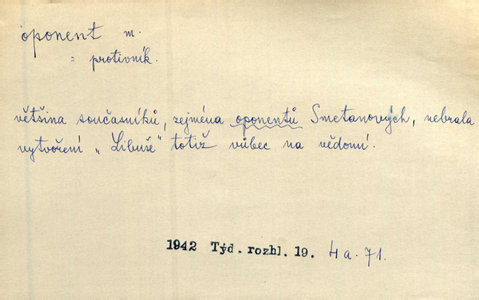 oponent m.
= protivník.
většina současníků, zejména oponentů Smetanových, nebrala
vytvoření „Libuše" totiž vůbec na vědomí.
1942 Týd. rozhl. 19. 4 a. 71.